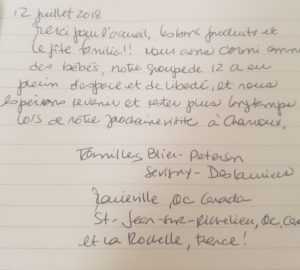 12 juillet 2018
Merci pour l'accueil, les bons produits et
le gîte familial!! Nous avons dormi comme
des bébés, notre groupe de 12 a eu
plein d'espace et de liberté, et nous
espérons revenir et rester plus longtemps
lors de notre prochaine visite à
Familles Blier-Peterson
Sevigny-Deslauriers
QC Canada
St-Jean-sur-Richelieu, QC, Canada
et La Rochelle, France!